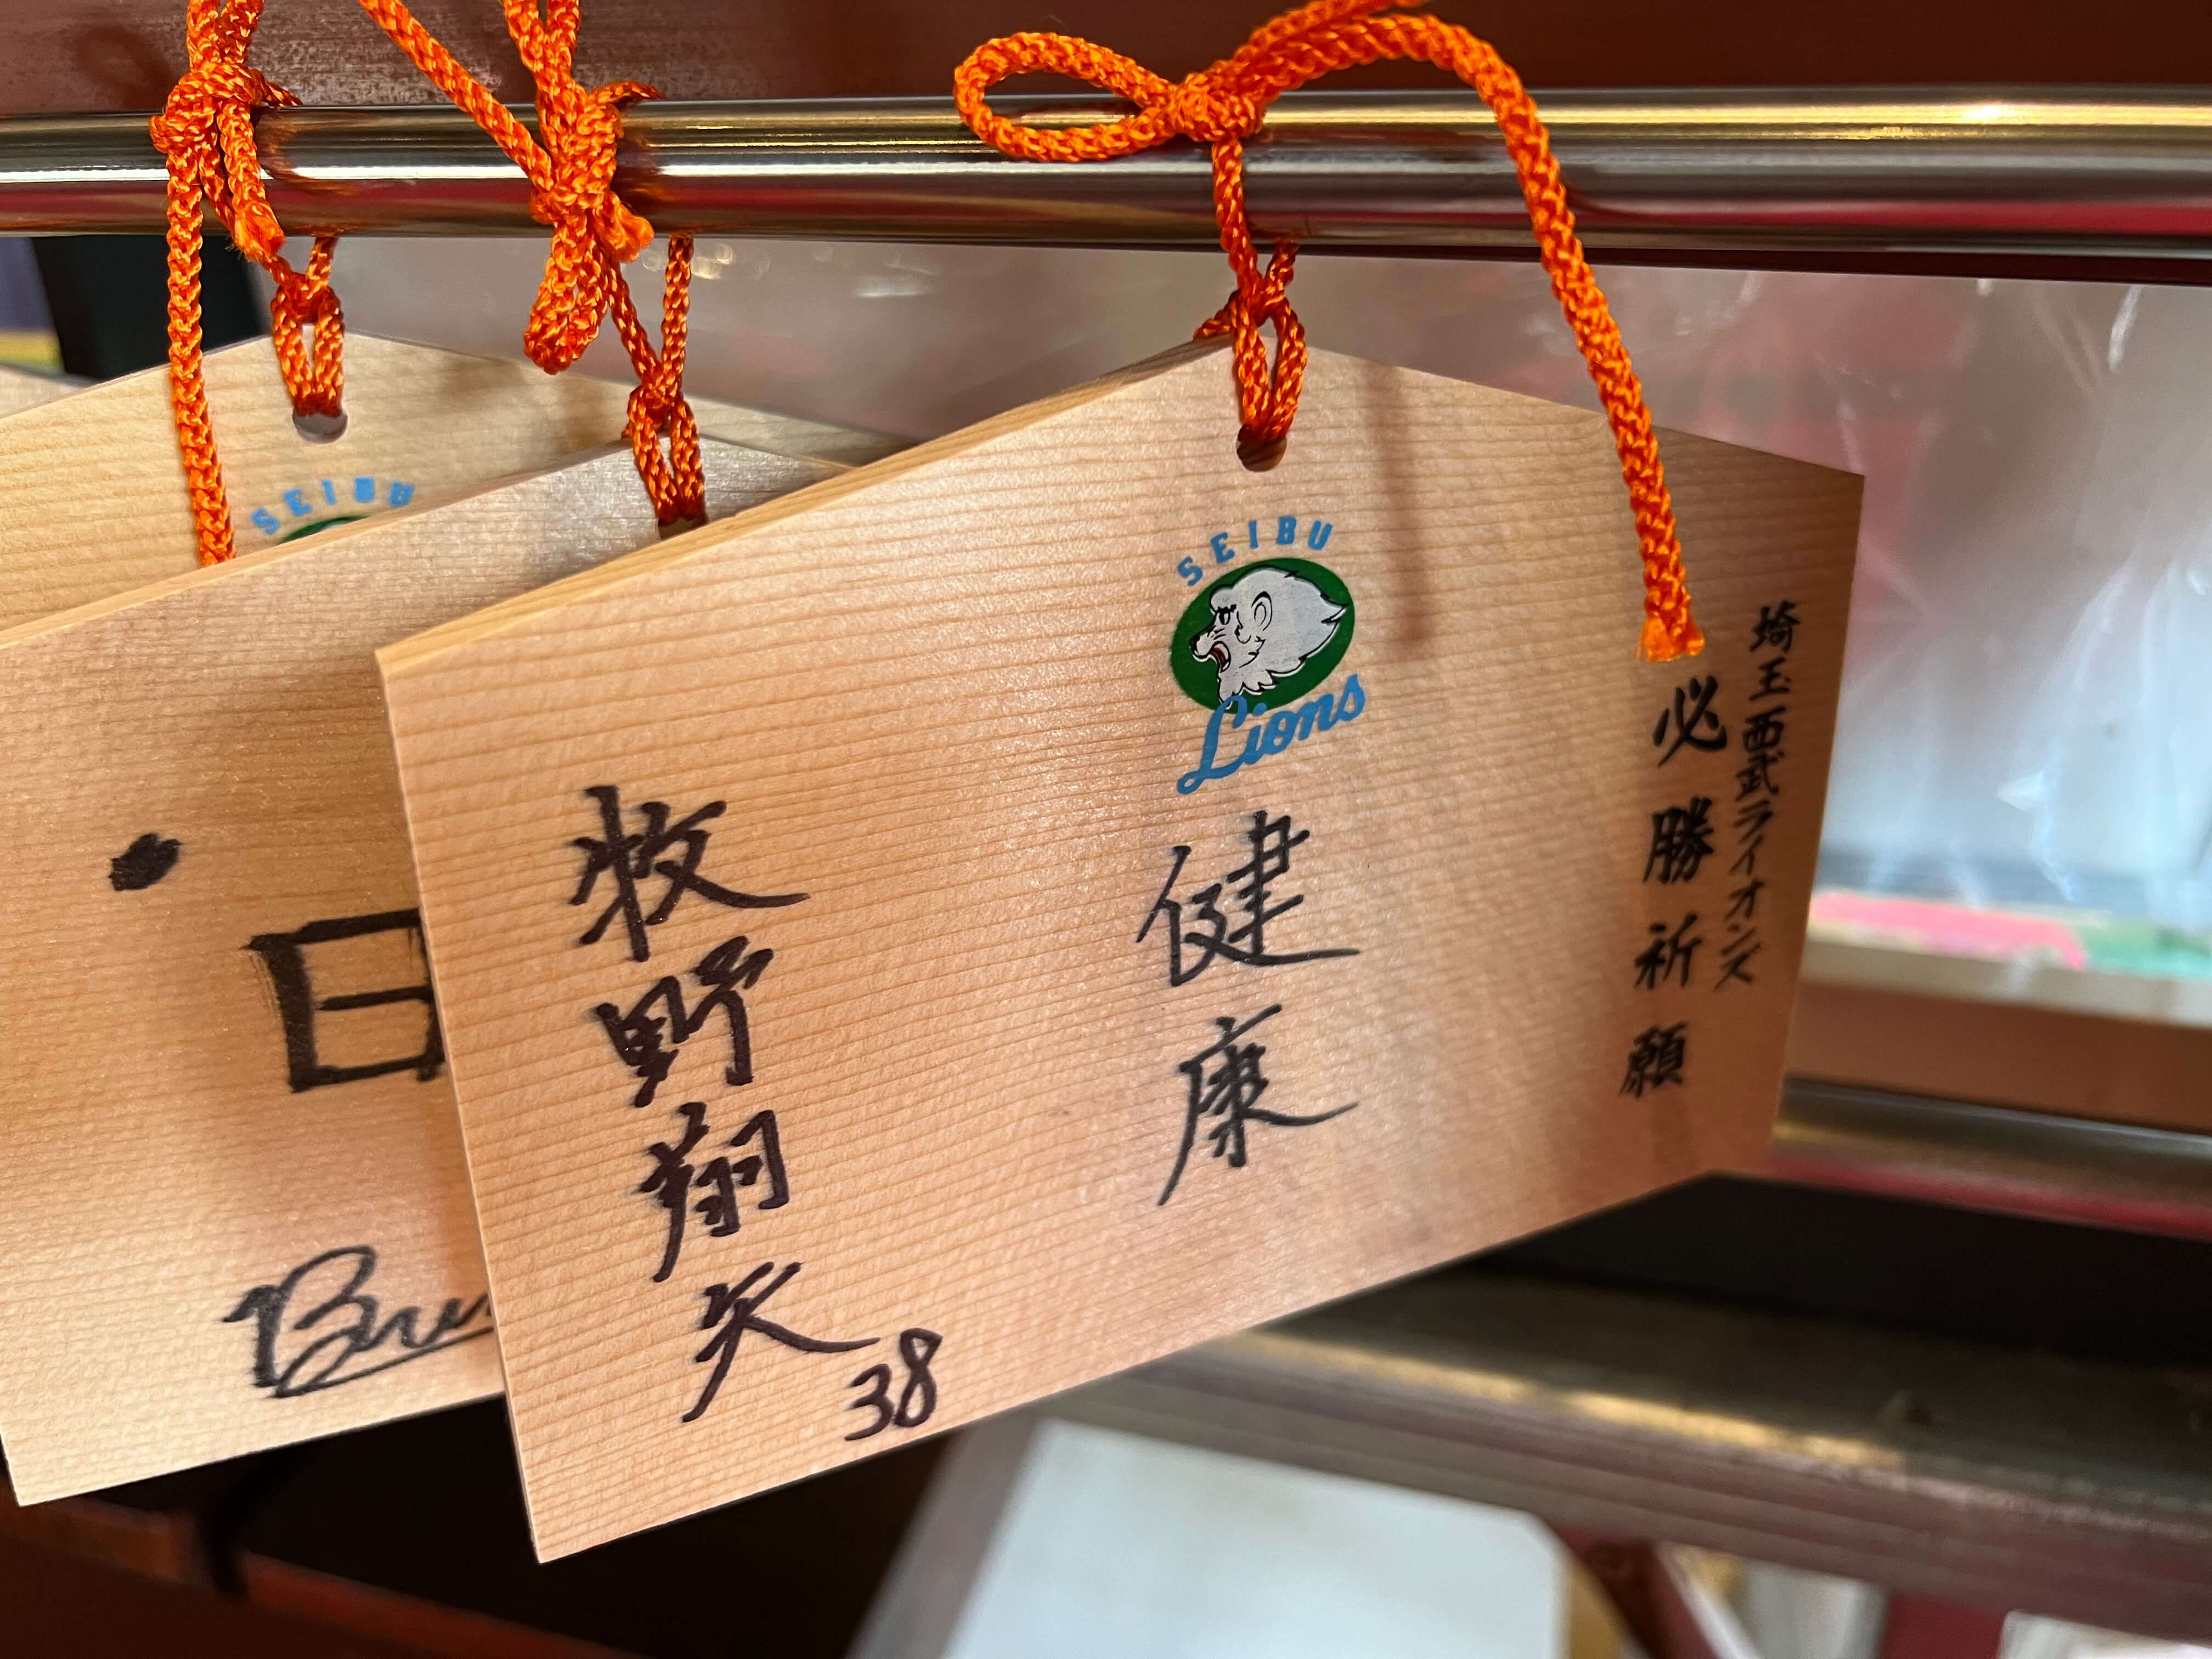 SEIBU
Lions
埼玉西武ライオンズ
必勝祈願
健康
牧野翔矢
38
SEIBU
日